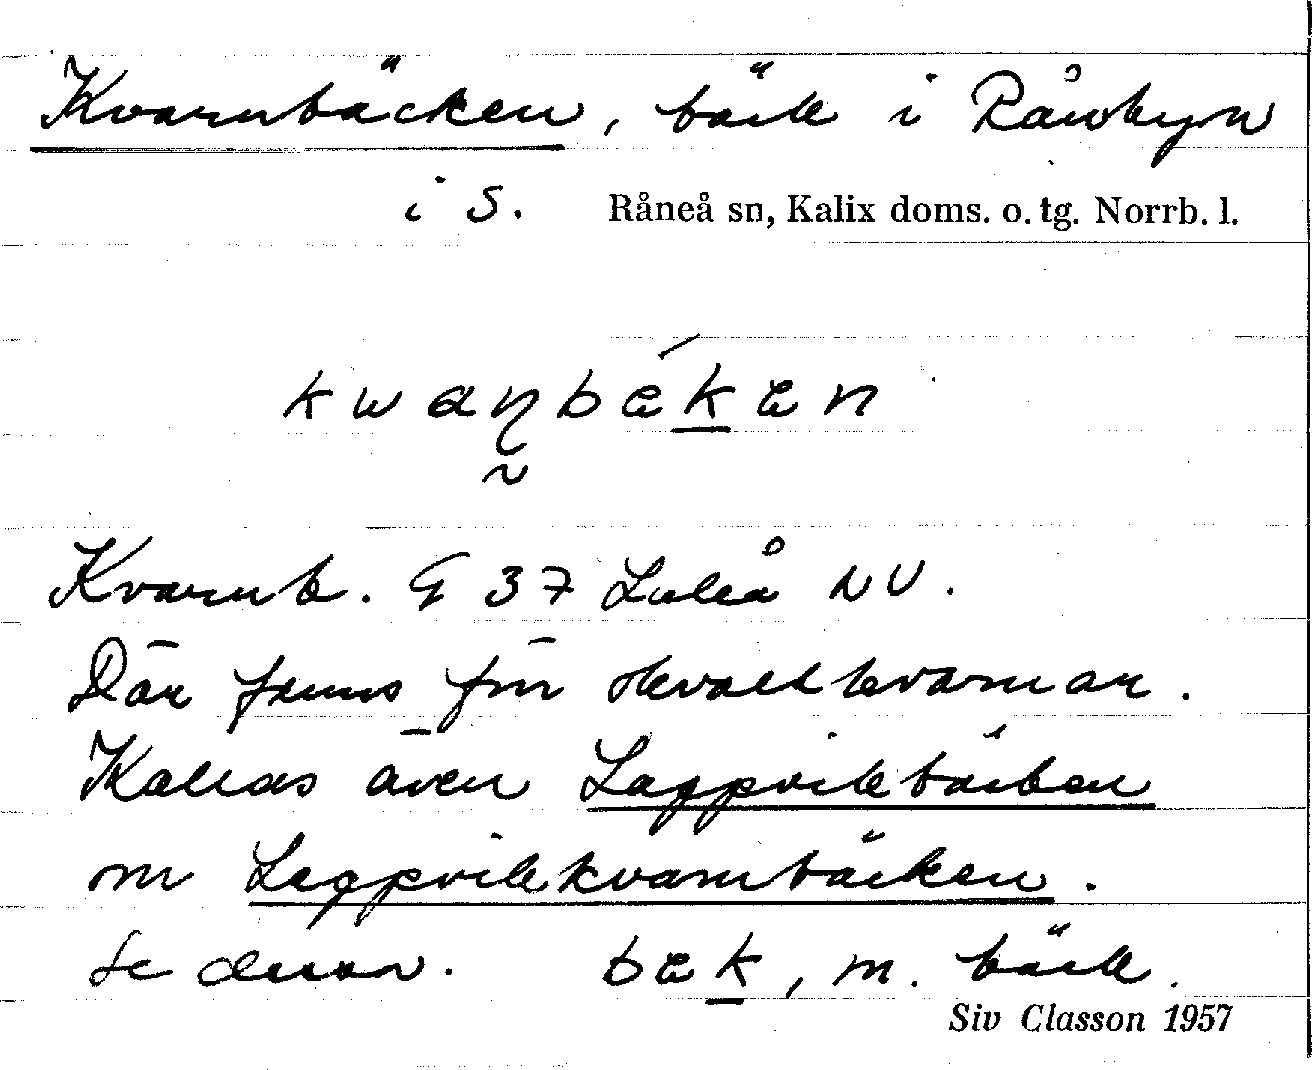 Kvarnbäcken, bäck i Rånbyn
i S. Råneå sn, Kalix doms. o. tg. Norrb. l.
kwaɳbækæn
Kvarnb. G 37 Luleå NV.
Där fanns förr skvaltkvarnar.
Kallas även Lappvikbäcken
m Lappvikkvarnbäcken.
Se dessa. bæk, m. bäck.
Siv Classon 1957